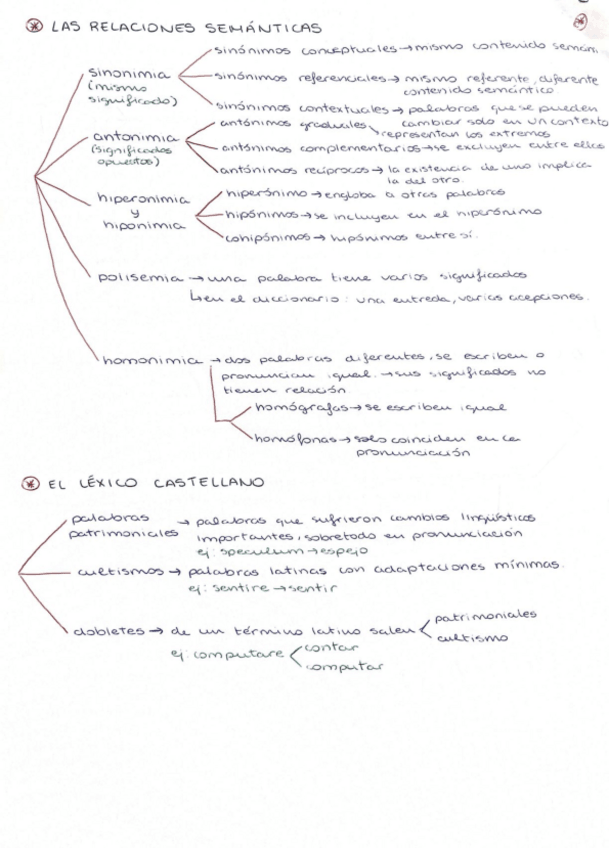 LAS RELACIONES SEMÁNTICAS
sinonimia (mismo significado)
sinónimos conceptuales → mismo contenido semán
sinónimos referenciales → mismo referente, diferente
contenido semántico
sinónimos contextuales → palabras que se pueden
cambiar solo en un contexto
antonimia (significados opuestos)
antónimos graduales
representan los extremos
antónimos complementarios → se excluyen entre ellos
antónimos recíprocos → la existencia de uno implica
la del otro.
hiperonimia
y
hiponimia
hiperónimo → engloba a otras palabras
hipónimos → se incluyen en el hiperónimo
cohipónimos → hipónimos entre sí.
polisemia → una palabra tiene varios significados
↳ en el diccionario: una entrada, varias acepciones.
homonimia → dos palabras diferentes, se escriben o
pronuncian igual. → sus significados no
tienen relación
homógrafas → se escriben igual
homófonas → solo coinciden en la
pronunciación
EL LÉXICO CASTELLANO
palabras
patrimoniales
→ palabras que sufrieron cambios lingüísticos
importantes, sobretodo en pronunciación
ej: speculum → espejo
cultismos → palabras latinas con adaptaciones mínimas.
ej: sentire → sentir
dobletes → de un término latino salen
patrimoniales
cultismo
ej: computare
contar
computar